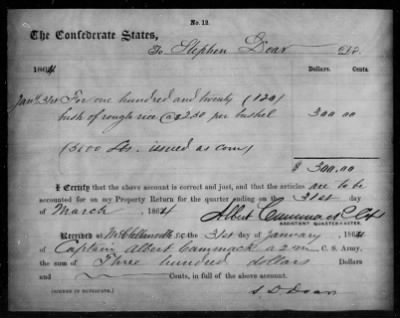 No. 12.
The Confederate States,
To Stephen Dear Dr.
1864 Dollars. Cents.
Jany 31st For one hundred and twenty (120)
bush of rough rice @ $2.50 per bushel 300 00
(5400 lbs. issued as corn)
$ 300.00
I Certify that the above account is correct and just, and that the articles are to be
accounted for on my Property Return for the quarter ending on the 31st day
of March, 1864 Albert Cammack Capt
ASSISTANT QUARTERMASTER.
Received at McClellanville S.C. the 31st of January, 1864
of Captain Albert Cammack a.q.m. C. S. Army,
the sum of Three hundred dollars Dollars
and Cents, in full of the above account.
(SIGNED IN DUPLICATE.) S D Dear